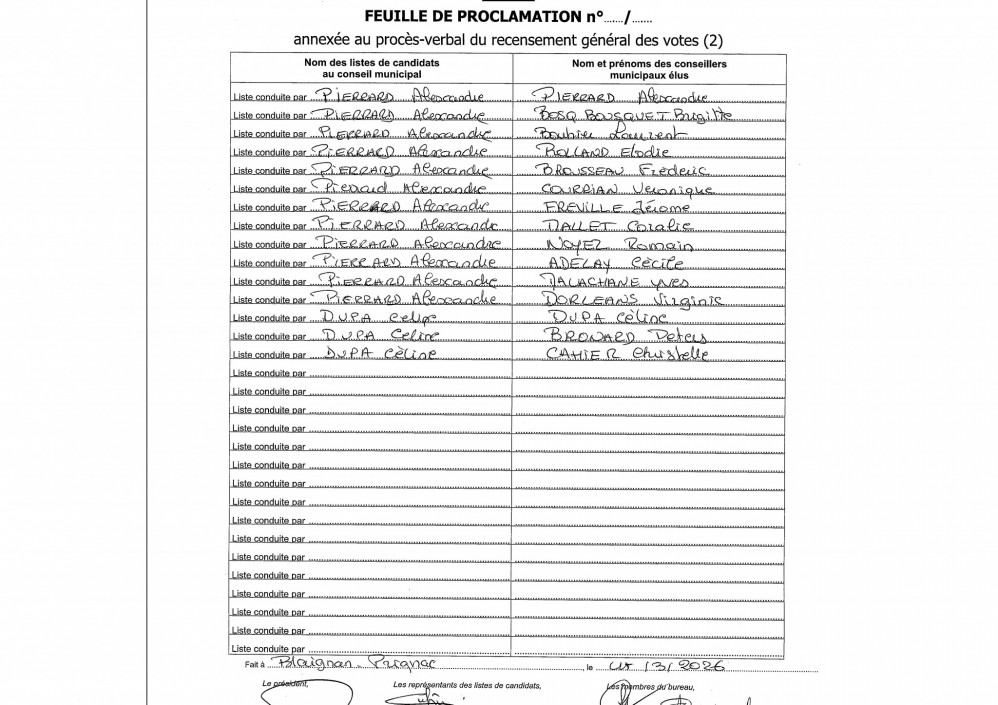 FEUILLE DE PROCLAMATION n°....../.......
annexée au procès-verbal du recensement général des votes (2)
Nom des listes de candidats au conseil municipal Nom et prénoms des conseillers municipaux élus
Liste conduite par PIERRARD Alexandre PIERRARD Alexandre
Liste conduite par PIERRARD Alexandre BESQ BOUSQUET Brigitte
Liste conduite par PIERRARD Alexandre Bouhier Laurent
Liste conduite par PIERRARD Alexandre ROLLAND Elodie
Liste conduite par PIERRARD Alexandre BROUSSEAU Frédéric
Liste conduite par Pierrard Alexandre COURRIAN Véronique
Liste conduite par PIERRARD Alexandre FREVILLE Jérome
Liste conduite par PIERRARD Alexandre MALLET Coralie
Liste conduite par PIERRARD Alexandre NOYER Romain
Liste conduite par PIERRARD Alexandre ADELAY Cécile
Liste conduite par PIERRARD Alexandre YVES
Liste conduite par PIERRARD Alexandre DORLEANS Virginie
Liste conduite par DUPA Céline DUPA Céline
Liste conduite par DUPA Celine
Liste conduite par DUPA Cèline CAHIER Christelle
Liste conduite par
Liste conduite par
Liste conduite par
Liste conduite par
Liste conduite par
Liste conduite par
Liste conduite par
Liste conduite par
Liste conduite par
Liste conduite par
Liste conduite par
Liste conduite par
Liste conduite par
Liste conduite par
Liste conduite par
Liste conduite par
Fait à Blaignan-Prignac, le /3/2026
Le président, Les représentants des listes de candidats, Les membres du bureau,